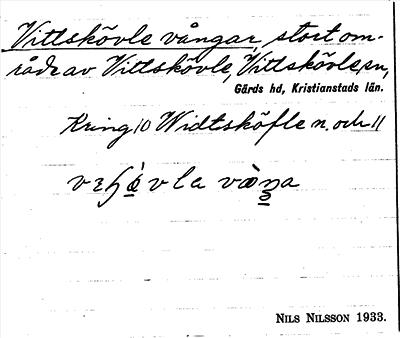 Vittskövle vångar, stort om-
råde av Vittskövle, Vittskövle sn,
Gärds hd, Kristianstads län.
Kring 10 Widtsköfle n. och 11
NILS NILSSON 1933.